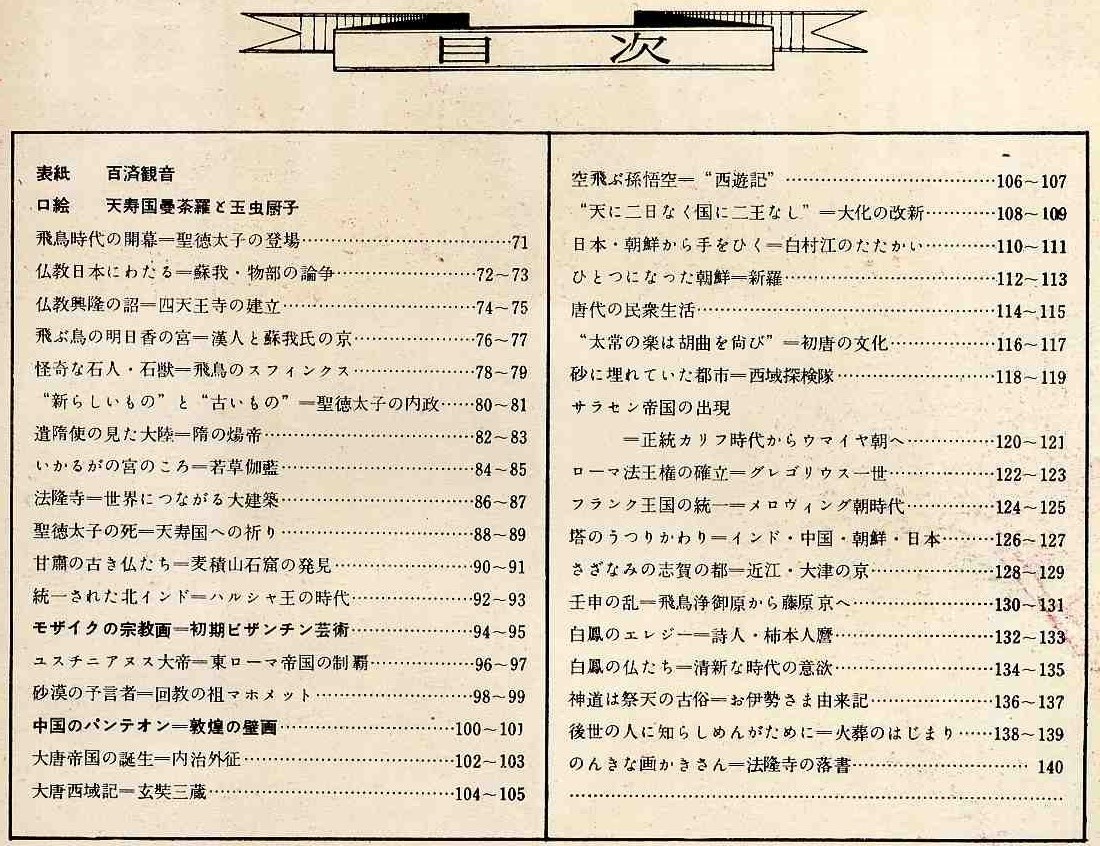 目次
表紙　百済観音
口絵　天寿国曼荼羅と玉虫厨子
飛鳥時代の開幕＝聖徳太子の登場……………71
仏教日本にわたる＝蘇我・物部の論争……………72～73
仏教興隆の詔＝四天王寺の建立……………74～75
飛ぶ鳥の明日香の宮＝漢人と蘇我氏の京……………76～77
怪奇な石人・石獣＝飛鳥のスフィンクス……………78～79
“新らしいもの”と“古いもの”＝聖徳太子の内政……80～81
遣隋使の見た大陸＝隋の煬帝……………82～83
いかるがの宮のころ＝若草伽藍……………84～85
法隆寺＝世界につながる大建築……………86～87
聖徳太子の死＝天寿国への祈り……………88～89
甘粛の古き仏たち＝麦積山石窟の発見……………90～91
統一された北インド＝ハルシャ王の時代……………92～93
モザイクの宗教画＝初期ビザンチン芸術……………94～95
ユスチニアヌス大帝＝東ローマ帝国の制覇……………96～97
砂漠の予言者＝回教の祖マホメット……………98～99
中国のパンテオン＝敦煌の壁画……………100～101
大唐帝国の誕生＝内治外征……………102～103
大唐西域記＝玄奘三蔵……………104～105
空飛ぶ孫悟空＝“西遊記”……………106～107
“天に二日なく国に二王なし”＝大化の改新………108～109
日本・朝鮮から手をひく＝白村江のたたかい………110～111
ひとつになった朝鮮＝新羅……………112～113
唐代の民衆生活……………114～115
“太常の楽は胡曲を尚び”＝初唐の文化……………116～117
砂に埋れていた都市＝西域探検隊……………118～119
サラセン帝国の出現
＝正統カリフ時代からウマイヤ朝へ……………120～121
ローマ法王権の確立＝グレゴリウス一世……………122～123
フランク王国の統一＝メロヴィング朝時代……………124～125
塔のうつりかわり＝インド・中国・朝鮮・日本………126～127
さざなみの志賀の都＝近江・大津の京……………128～129
壬申の乱＝飛鳥浄御原から藤原京へ……………130～131
白鳳のエレジー＝詩人・柿本人麿……………132～133
白鳳の仏たち＝清新な時代の意欲……………134～135
神道は祭天の古俗＝お伊勢さま由来記……………136～137
後世の人に知らしめんがために＝火葬のはじまり……138～139
のんきな画かきさん＝法隆寺の落書……………140